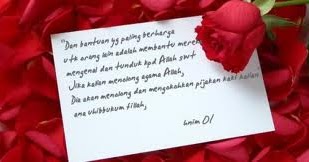 "Dan bantuan yg paling berharga
utk orang lain adalah membantu mereka
mengenal dan tunduk kpd Allah swt
Jika kalian menolong agama Allah,
Dia akan menolong dan mengokohkan pijakan kaki kalian
ana uhibbukum fillah,
hnim 01